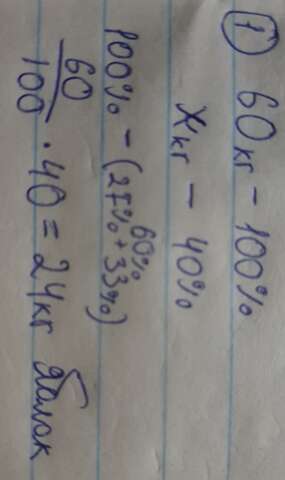 1 60кг - 100%
Xкг - 40%
60%
100% - (27% + 33%)
60/100 · 40 = 24кг яблок